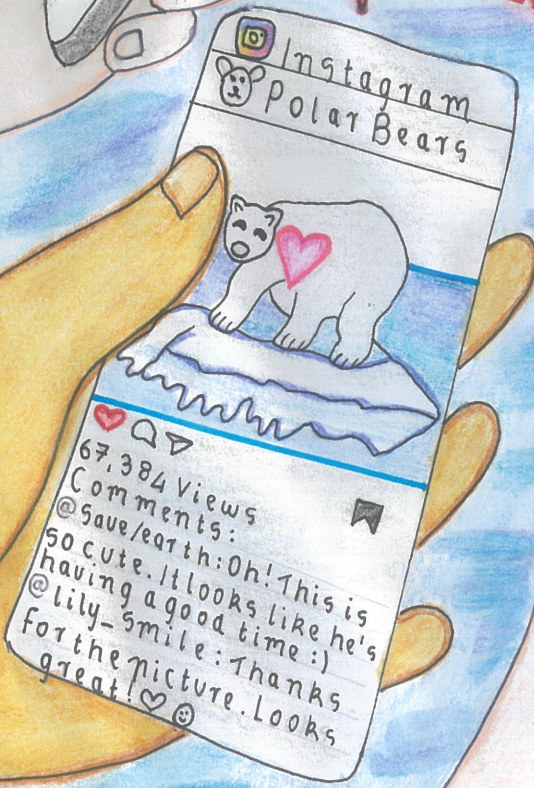 Instagram
Polar Bears
67,384 Views
Comments:
@Save/earth:Oh! This is
so cute. It looks like he's
having a good time :)
@lily_smile: Thanks
for the picture. Looks
great!♡☺